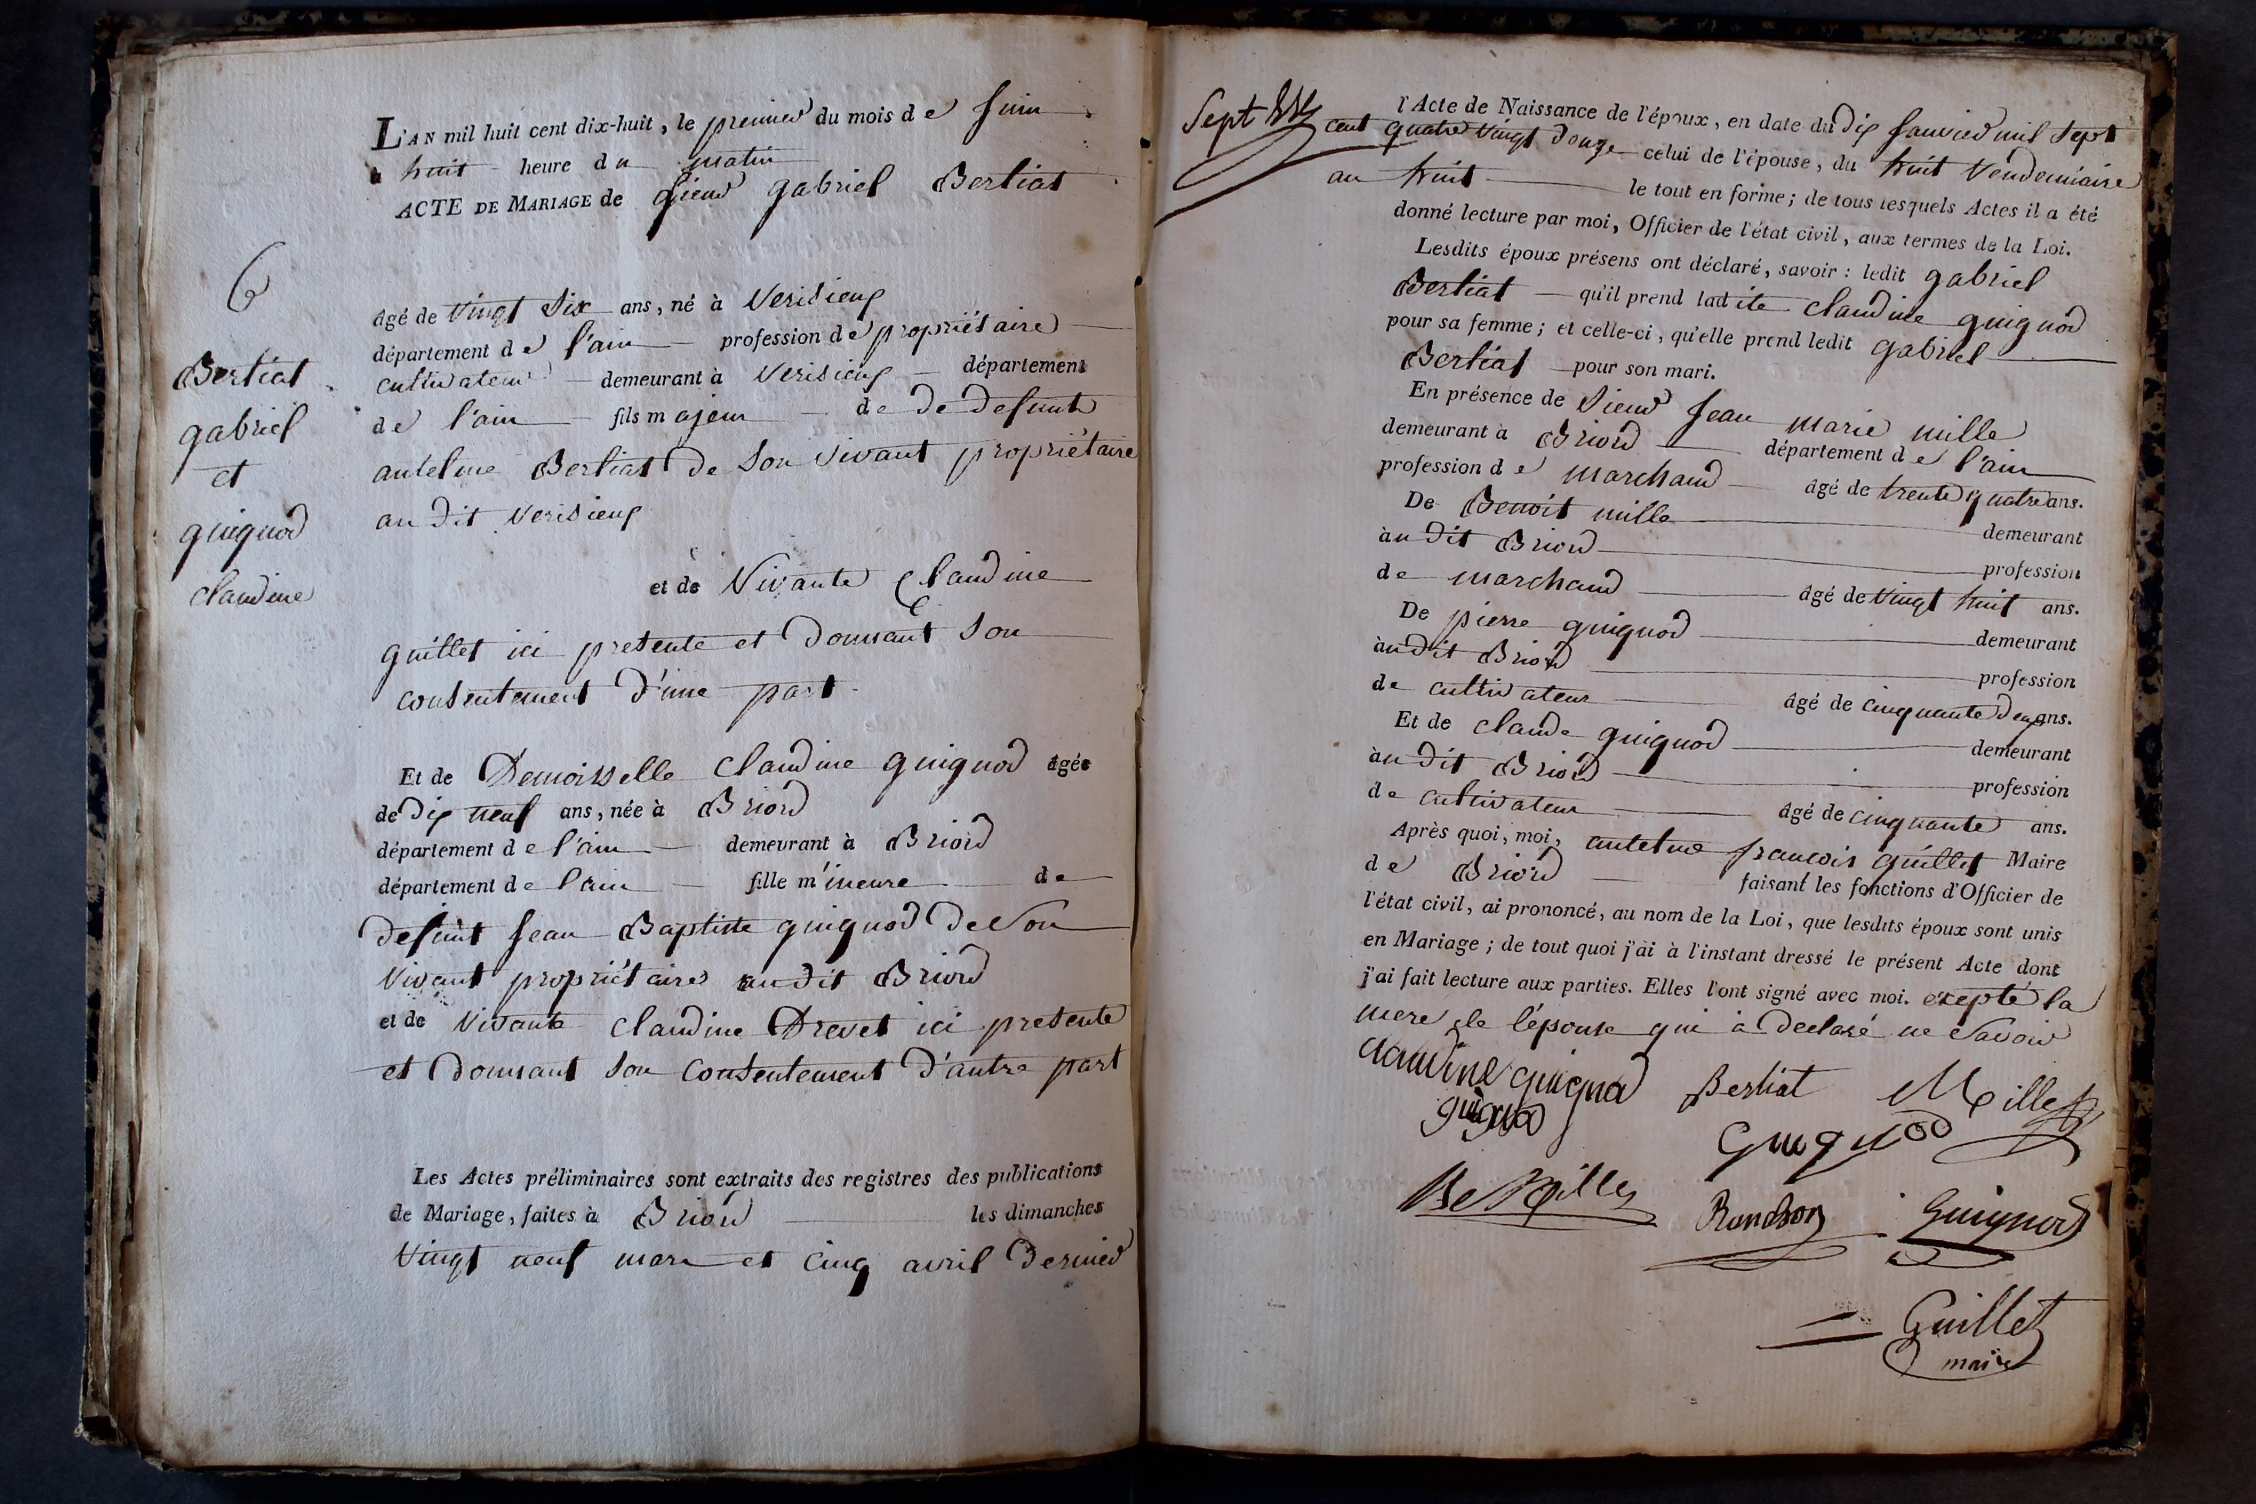 L'AN mil huit cent dix-huit, le premier du mois de Juin
à huit heure du matin
ACTE DE MARIAGE de Sieur gabriel Bertiat
6
agé de vingt Six ans, né à Verisieux
département de l'ain profession de propriétaire
Bertiat
cultivateur demeurant à Verisieux département
gabriel
de l'ain fils majeur de de defunt
et
antelme Bertiat de Son vivant propriétaire
guignod
au dit Verisieux
claudine
et de Vivante Claudine
guillet ici presente et donnant Son
consentement d'une part
Et de Demoisselle Claudine guignod agée
de dix neuf ans, née à Briord
département de l'ain demeurant à Briord
département de l'ain fille m'ineure de
defunt Jean Baptiste guignod de Son
Vivant propriétaires audit Briord
et de Vivante claudine Drevet ici presente
et donnant Son consentement d'autre part
Les Actes préliminaires sont extraits des registres des publications
de Mariage, faites à Briord les dimanches
Vingt neuf mars et cinq avril dernier
Sept
l'Acte de Naissance de l'époux, en date du dix Janvier mil Sept
cent quatre vingt douze celui de l'épouse, du huit Vendemiaire
an huit le tout en forme; de tous lesquels Actes il a été
donné lecture par moi, Officier de l'état civil, aux termes de la Loi.
Lesdits époux présens ont déclaré, savoir: ledit gabriel
Bertiat qu'il prend ladite Claudine guignod
pour sa femme; et celle-ci, qu'elle prend ledit gabriel
Bertiat pour son mari.
En présence de Sieur Jean marie mille
demeurant à Briord département de l'ain
profession de marchand agé de trente quatre ans.
De Benoit mille demeurant
àu dit Briord profession
de marchand agé de vingt huit ans.
De pierre guignod demeurant
àu dit Briord profession
de cultivateur agé de cinquante deux ans.
Et de claude guignod demeurant
àu dit Briord profession
de cultivateur agé de cinquante ans.
Après quoi, moi, antelme francois guillet Maire
de Briord faisant les fonctions d'Officier de
l'état civil, ai prononcé, au nom de la Loi, que lesdits époux sont unis
en Mariage; de tout quoi j'ai à l'instant dressé le présent Acte dont
j'ai fait lecture aux parties. Elles l'ont signé avec moi. excepté la
mere de l'épouse qui à declaré ne Savoir
claudine guignod Bertiat Mille
guignod guignod
Be Mille Guignod
Guillet
maire